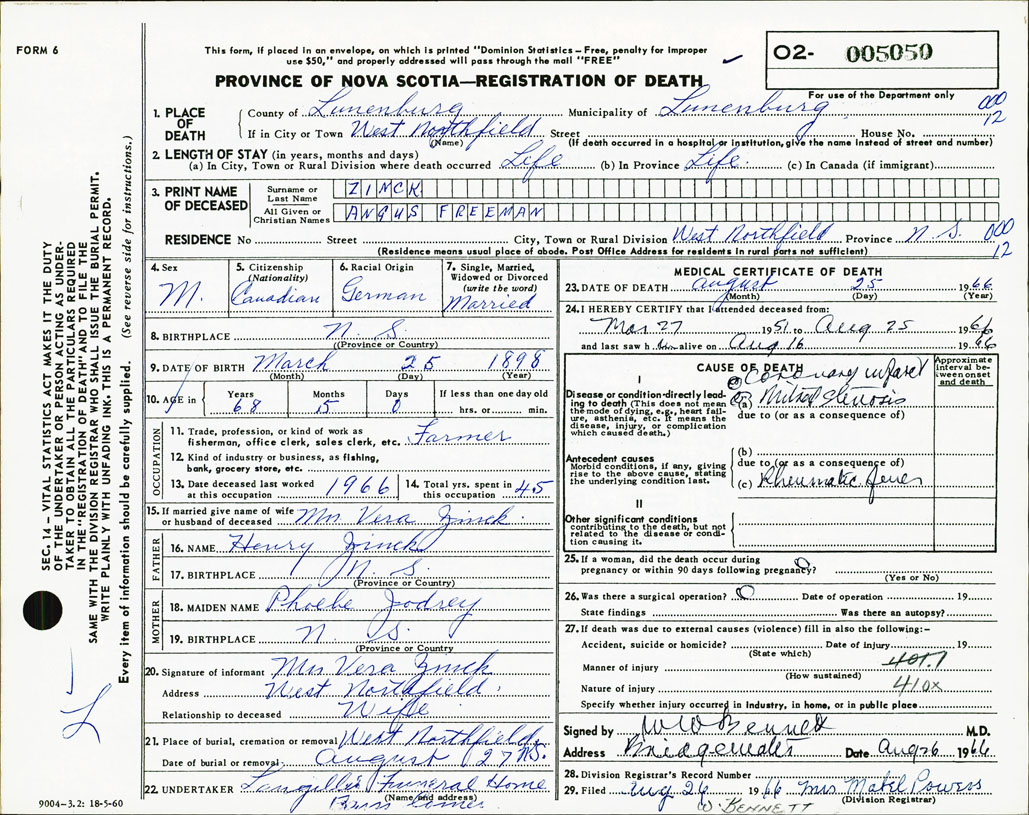 FORM 6
This form, if placed in an envelope, on which is printed "Dominion Statistics – Free, penalty for improper
use $50," and properly addressed will pass through the mail "FREE"
PROVINCE OF NOVA SCOTIA—REGISTRATION OF DEATH
02- 005050
For use of the Department only
000
12
1. PLACE OF DEATH
County of Lunenburg Municipality of Lunenburg
If in City or Town West Northfield Street House No.
(Name) (If death occurred in a hospital or institution, give the name instead of street and number)
2. LENGTH OF STAY (in years, months and days)
(a) In City, Town or Rural Division where death occurred Life (b) In Province Life. (c) In Canada (if immigrant)
3. PRINT NAME OF DECEASED
Surname or Last Name ZINCK
All Given or Christian Names ANGUS FREEMAN
RESIDENCE No Street City, Town or Rural Division West Northfield Province N. S. 000
(Residence means usual place of abode. Post Office Address for residents in rural parts not sufficient) 12
4. Sex M.
5. Citizenship (Nationality) Canadian
6. Racial Origin German
7. Single, Married, Widowed or Divorced (write the word) Married
8. BIRTHPLACE N. S.
(Province or Country)
9. DATE OF BIRTH March 25 1898
(Month) (Day) (Year)
10. AGE in Years Months Days If less than one day old
68 5 0 hrs. or min.
OCCUPATION
11. Trade, profession, or kind of work as
fisherman, office clerk, sales clerk, etc. Farmer
12. Kind of industry or business, as fishing,
bank, grocery store, etc.
13. Date deceased last worked at this occupation 1966
14. Total yrs. spent in this occupation 45
15. If married give name of wife
or husband of deceased Mrs Vera Zinck
FATHER
16. NAME Henry Zinck
17. BIRTHPLACE N. S.
(Province or Country)
MOTHER
18. MAIDEN NAME Phoebe Jodrey
19. BIRTHPLACE N. S.
(Province or Country)
20. Signature of informant Mrs Vera Zinck
Address West Northfield.
Relationship to deceased Wife
21. Place of burial, cremation or removal West Northfield N.S.
Date of burial or removal August 27
22. UNDERTAKER Langille's Funeral Home
(Name and address)
9004–3.2: 18-5-60
MEDICAL CERTIFICATE OF DEATH
23. DATE OF DEATH August 25 1966
(Month) (Day) (Year)
24. I HEREBY CERTIFY that I attended deceased from:
Mar 27 1951 to Aug 25 1966
and last saw h im alive on Aug 16 1966
CAUSE OF DEATH
Approximate interval between onset and death
I
Disease or condition directly leading to death (This does not mean the mode of dying, e.g., heart failure, asthenia, etc. It means the disease, injury, or complication which caused death.)
Coronary infarct
(a) Mitral Stenosis
due to (or as a consequence of)
Antecedent causes
Morbid conditions, if any, giving rise to the above condition, stating the underlying condition last.
(b)
due to (or as a consequence of)
(c) Rheumatic fever
II
Other significant conditions
contributing to the death, but not related to the disease or condition causing it.
25. If a woman, did the death occur during
pregnancy or within 90 days following pregnancy?
(Yes or No)
26. Was there a surgical operation? 0 Date of operation 19
State findings Was there an autopsy?
27. If death was due to external causes (violence) fill in also the following:–
Accident, suicide or homicide? Date of injury 19
(State which)
Manner of injury 401.1
(How sustained)
Nature of injury 410x
Specify whether injury occurred in industry, in home, or in public place
Signed by W W Bennett M.D.
Address Bridgewater Date Aug 26 1966
28. Division Registrar's Record Number
29. Filed Aug 26 1966 Mrs Mabel Powers
(Division Registrar)
W. BENNETT
SEC. 14 – VITAL STATISTICS ACT MAKES IT THE DUTY
OF THE UNDERTAKER OR PERSON ACTING AS UNDER-
TAKER TO OBTAIN ALL THE PARTICULARS REQUIRED
IN THE "REGISTRATION OF DEATH" AND TO FILE THE
SAME WITH THE DIVISION REGISTRAR WHO SHALL ISSUE THE BURIAL PERMIT.
WRITE PLAINLY WITH UNFADING INK. THIS IS A PERMANENT RECORD.
Every item of information should be carefully supplied. (See reverse side for instructions.)